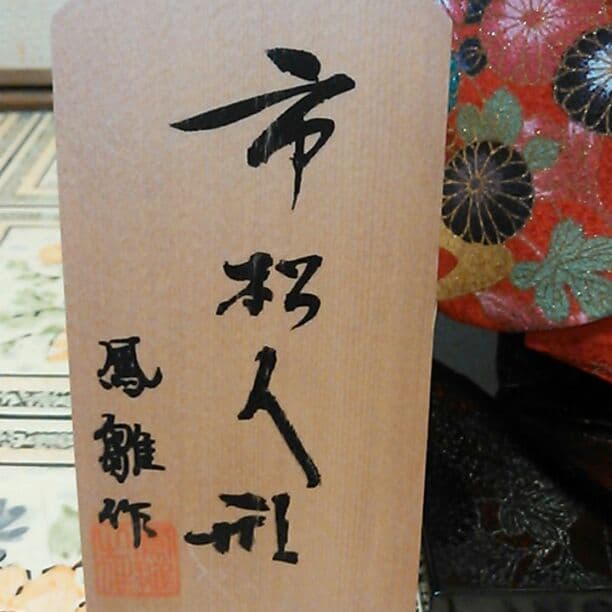 市松人形
鳳雛作